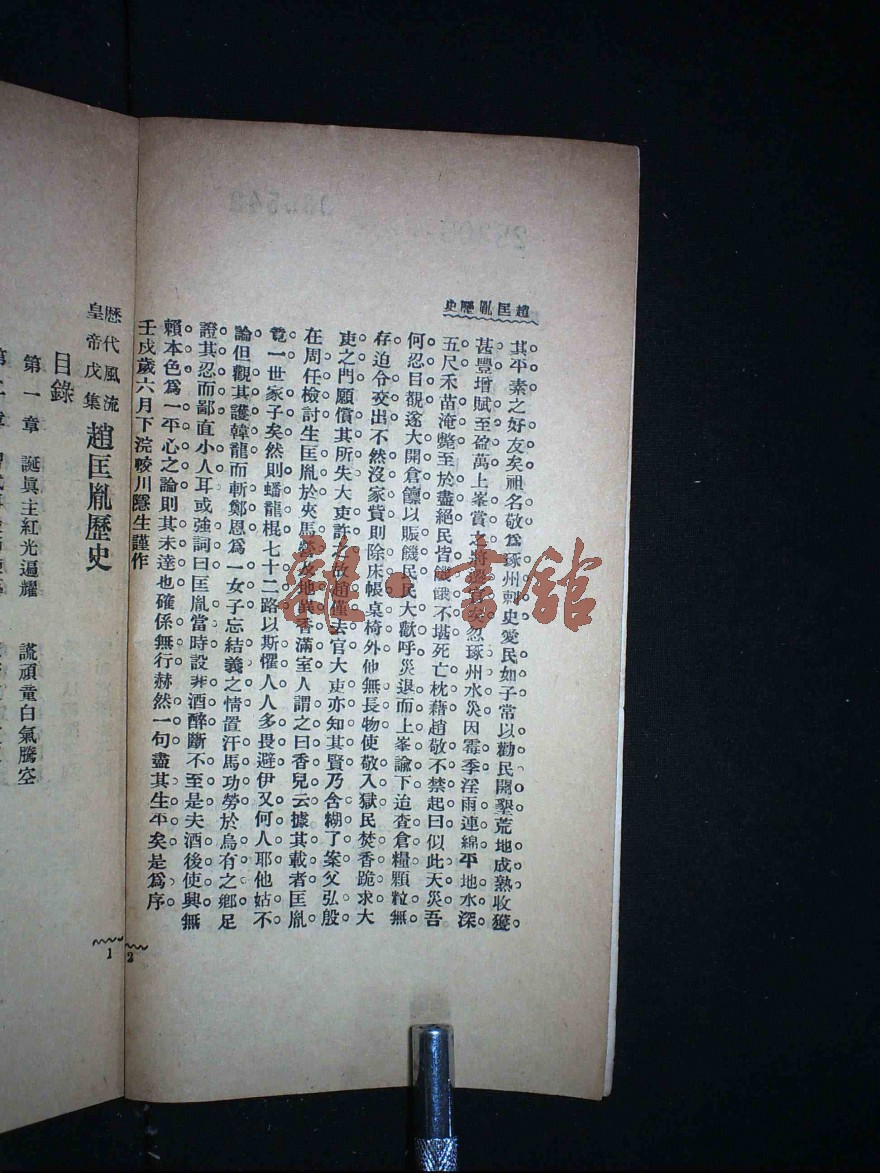 趙匡胤歷史
其平素之好友矣祖名敬爲琢州刺史愛民如子常以勸民開墾荒地成熟收獲
甚豐增賦至盈萬上峯賞之將遷官矣忽琢州水災因霉季淫雨連綿平地水深
五尺禾苗淹斃至於盡絕民皆饑餓不堪死亡枕藉趙敬不禁起曰似此天災吾
何忍目覩遂大開倉廩以賑饑民民大歡呼災退而上峯諭下迫查倉糧顆粒無
存迫令交出不然沒家貲則除床帳桌椅外他無長物使敬入獄民焚香跪求大
吏之門願償其所失大吏許之故趙僅去官大吏亦知其賢乃含糊了案父弘殷
在周任檢討生匡胤於夾馬營及地異香滿室人謂之曰香兒云據其載者匡胤
竟一世家子矣然則蟠龍棍七十二路以斯懼人人多畏避伊又何人耶他姑不
論但觀其護韓龍而斬鄭恩爲一女子忘結義之情置汗馬功勞於烏有之鄉足
證其忍而鄙直小人耳或強詞曰匡胤當時設非酒醉斷不至是夫酒後使興無
賴本色爲一平心之論則其未達也確係無行赫然一句盡其生平矣是爲序
壬戌歲六月下浣皎川隱生謹作
2
歷代風流
皇帝戊集
趙匡胤歷史
目錄
第一章 誕眞主紅光遍耀 謊頑童白氣騰空
1
雜·書館